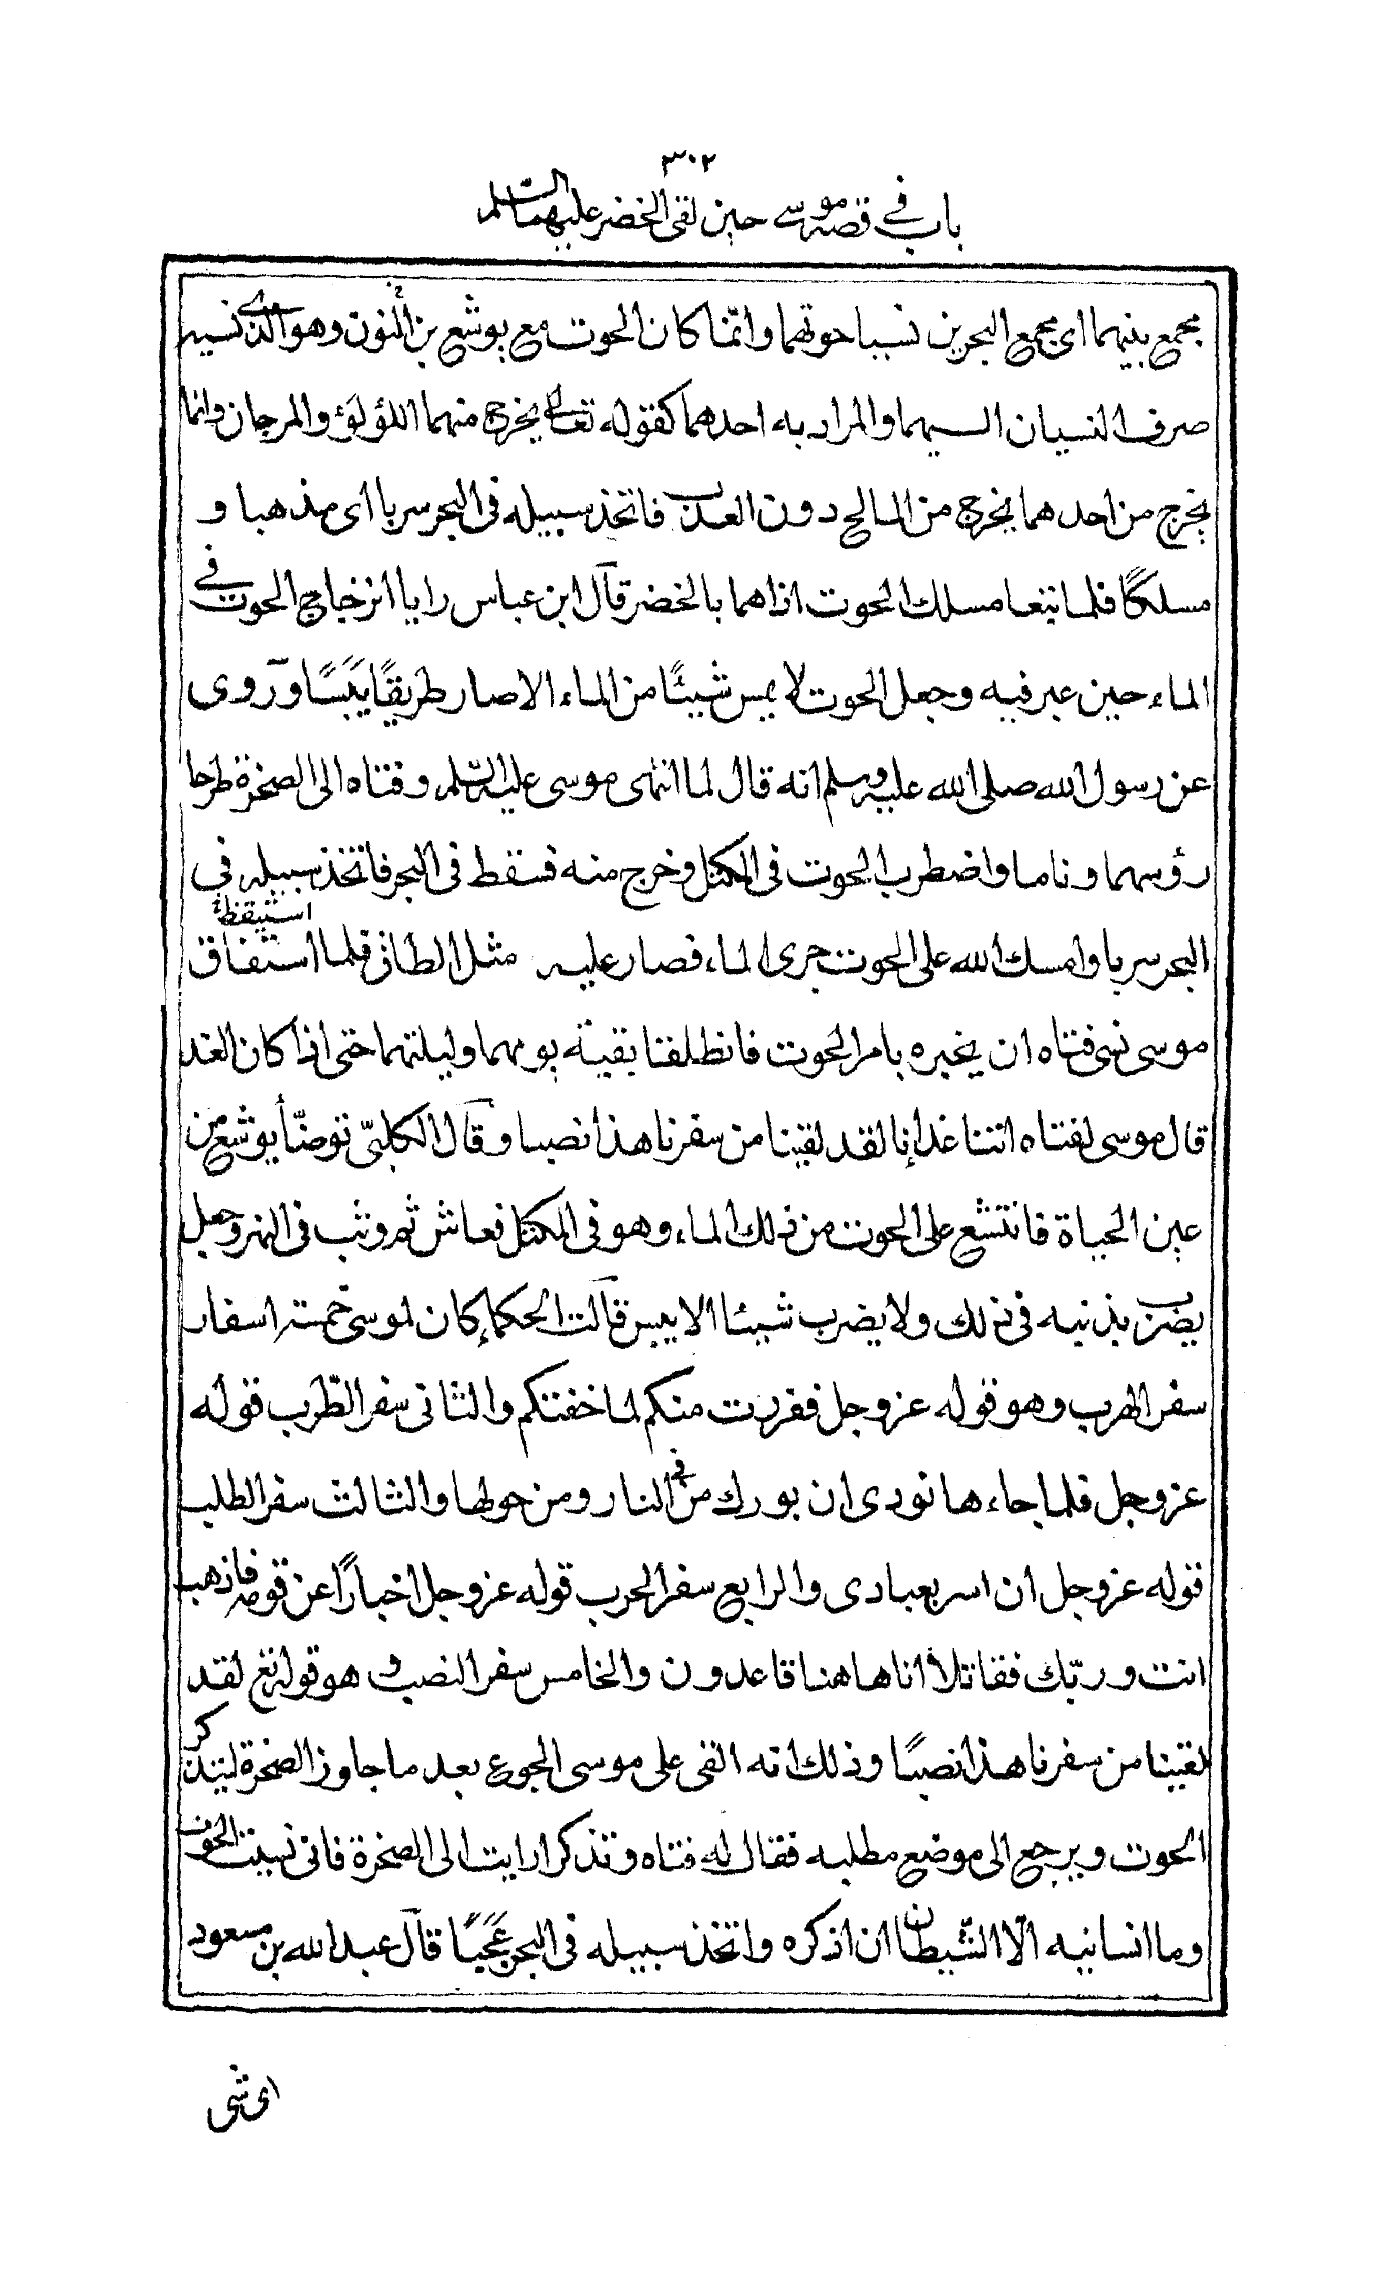 ٣٠٢
باب في قصة موسى حين لقى الخضر عليهما السلم
مجمع بينهما اى مجمع البحرين نسيا حوتهما وانّما كان الحوت مع يوشع بن النون وهو الذى نسيه
صرف النسيان اليهما والمراد به احدهما كقوله تعالى يخرج منهما اللؤلؤ والمرجان وانما
يخرج من احدهما يخرج من المالح دون العذب فاتخذ سبيله فى البحر سربا اى مذهبا و
مسلكًا فلما تتبعا مسلك الحوت اذا هما بالخضر قال ابن عباس رايا اثر جناح الحوت في
الماء حين عبر فيه وجعل الحوت لا يمس شيئًا من الماء الا صار طريقًا يَبَسًا وروى
عن رسول الله صلى الله عليه وسلم انه قال لما انتهى موسى عليه السّلم وفتاه الى الصخرة طرحا
رؤسهما وناما واضطرب الحوت فى المكتل وخرج منه فسقط فى البحر فاتخذ سبيله فى
البحر سربا وامسك الله على الحوت جرى الماء فصار عليه مثل الطاق فلما استفاق
استيقظ
موسى نسى فتاه ان يخبره بامر الحوت فانطلقا بقية يومهما وليلتهما حتى اذا كان الغد
قال موسى لفتاه اتنا غدانا لقد لقينا من سفرنا هذا نصبا وقال الكلبىّ توضّأ يوشع من
عين الحياة فانتشع على الحوت من ذلك الماء وهو فى المكتل فعاش ثم وثب فى النهر وجعل
يضرب بذنبه فى ذلك ولا يضرب شيئا الا يبس قالت الحكماء كان لموسى خمسة اسفار
سفر الهرب وهو قوله عز وجل ففررت منكم لما خفتكم والثانى سفر الطّرب قوله
عز وجل فلما جاءها نودى ان بورك من فى النار ومن حولها والثالث سفر الطلب
قوله عز وجل ان اسر بعبادى والرابع سفر الحرب قوله عز وجل اخبارًا عن قومه فاذهب
انت وربّك فقاتلا انا هاهنا قاعدون والخامس سفر النصب و هو قوله تع لقد
لقينا من سفرنا هذا نصبًا وذلك انه القى على موسى الجوع بعد ما جاوز الصخرة ليتذكر
الحوت ويرجع الى موضع مطلبه فقال له فتاه وتذكر ارايت الى الصخرة فانى نسيت الحوت
وما انسانيه الّا الشّيطان ان اذكره واتخذ سبيله فى البحر عَجَبًا قال عبد الله بن مسعود
اى شى